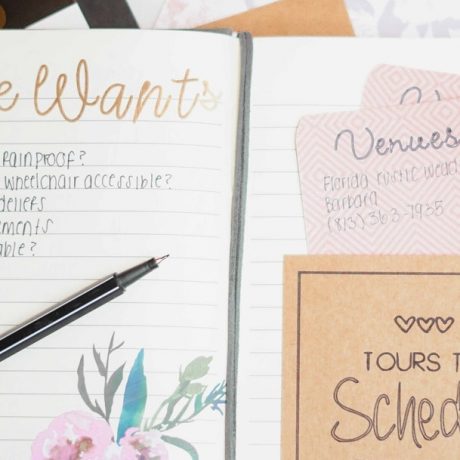 e Wants
rainproof?
wheelchair accessible?
beliefs
ements
able?
Venues
Florida rustic wedd
Barbara
(813) 363-7935
TOURS T
Sched